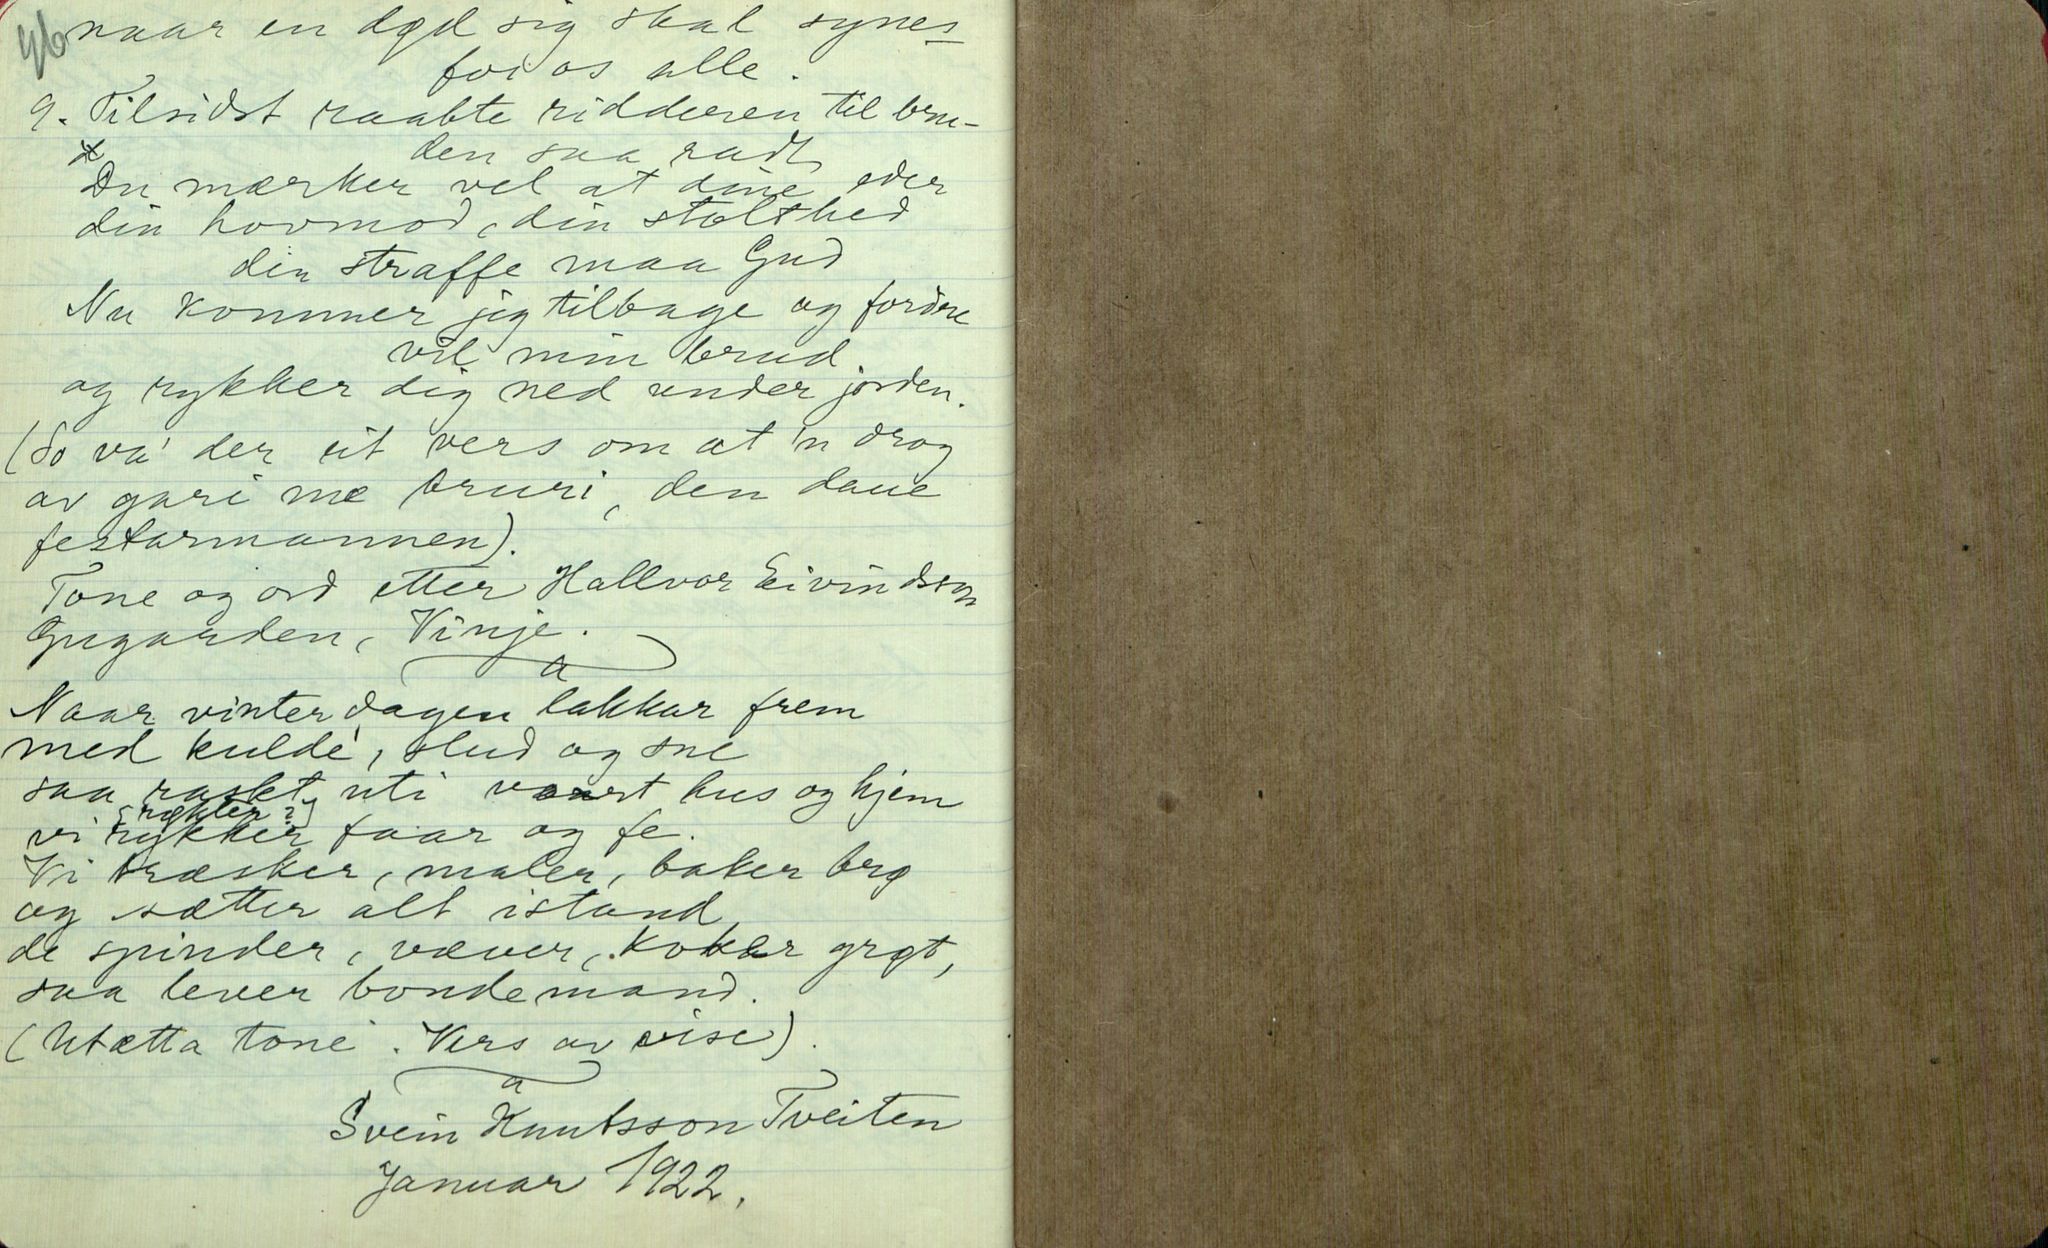 46 naar en død sig skal synes
for os alle.
9. Tilsidst raabte ridderen til bru-
den saa radt
Du mærker vel at dine eder
din hovmod, din stolthed
den straffe maa Gud
Nu kommer jeg tilbage og fordre
vil min brud
og rykker dig ned under jorden.
(So va' der eit vers om at 'n drog
av gari mæ bruri, den daue
festarmannen).
Tone og ord etter Hallvor Eivindson
Gugarden, Vinje.
Naar vinterdagen lakkar frem
med kulde, slud og sne
saa raskt uti vaart hus og hjem
[røkter?]
vi rykker faar og fe.
Vi træsker, maler, baker brø
og sætter alt istand
de spinder, væver, koker grøt,
saa lever bondemand.
(Utætta tone. Vers av vise).
Svein Knutsson Tveiten
Januar 1922.